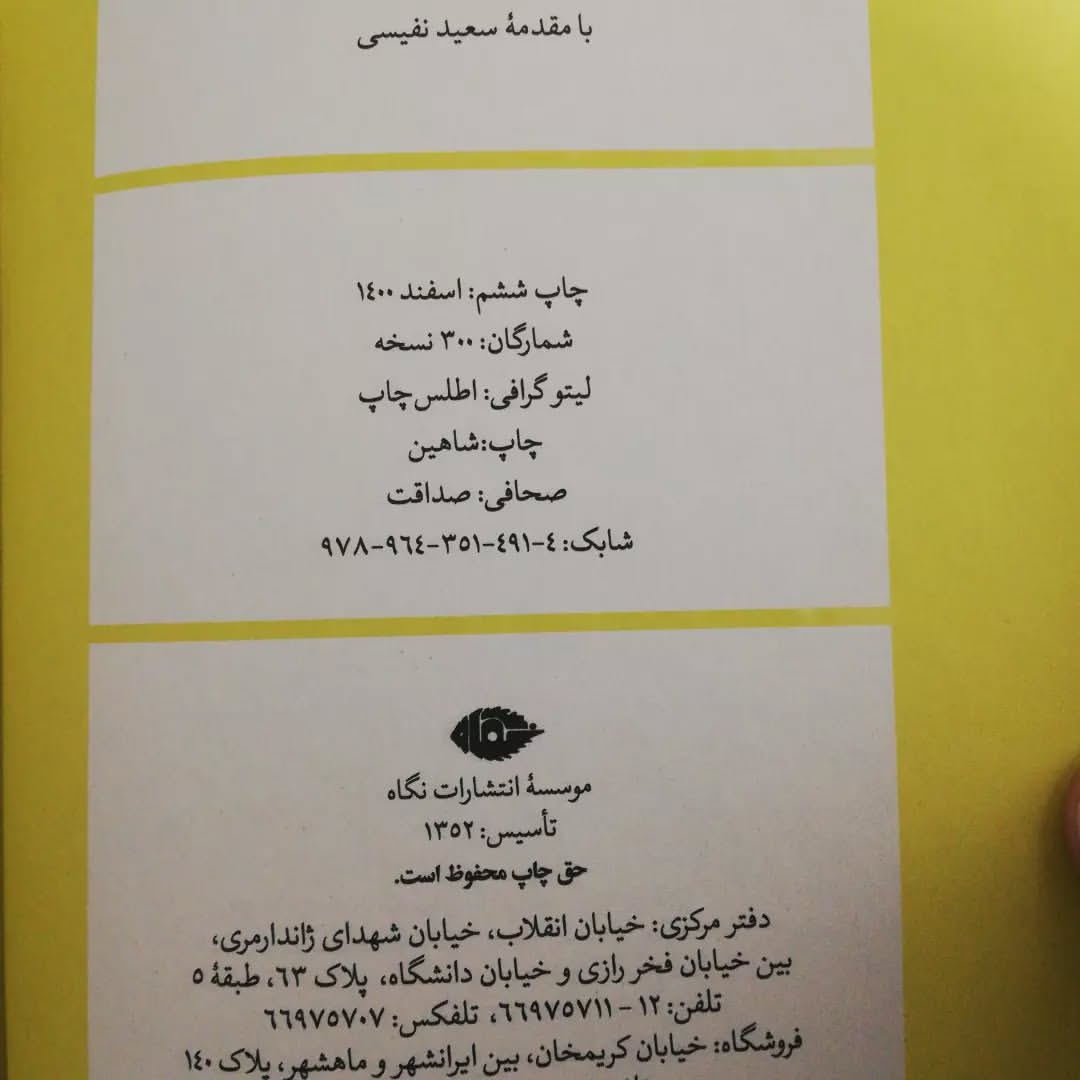 با مقدمهٔ سعید نفیسی
چاپ ششم: اسفند ۱٤۰۰
شمارگان: ۳۰۰ نسخه
لیتو گرافی: اطلس‌چاپ
چاپ:شاهین
صحافی: صداقت
شابک: ٤-٤۹۱-۳۵۱-۹٦٤-۹۷۸
نگاه
موسسهٔ انتشارات نگاه
تأسیس: ۱۳۵۲
حق چاپ محفوظ است.
دفتر مرکزی: خیابان انقلاب، خیابان شهدای ژاندارمری،
بین خیابان فخر رازی و خیابان دانشگاه، پلاک ٦۳، طبقهٔ ۵
تلفن: ۱۲ - ٦٦۹۷۵۷۱۱، تلفکس: ٦٦۹۷۵۷۰۷
فروشگاه: خیابان کریمخان، بین ایرانشهر و ماهشهر، پلاک ۱٤۰